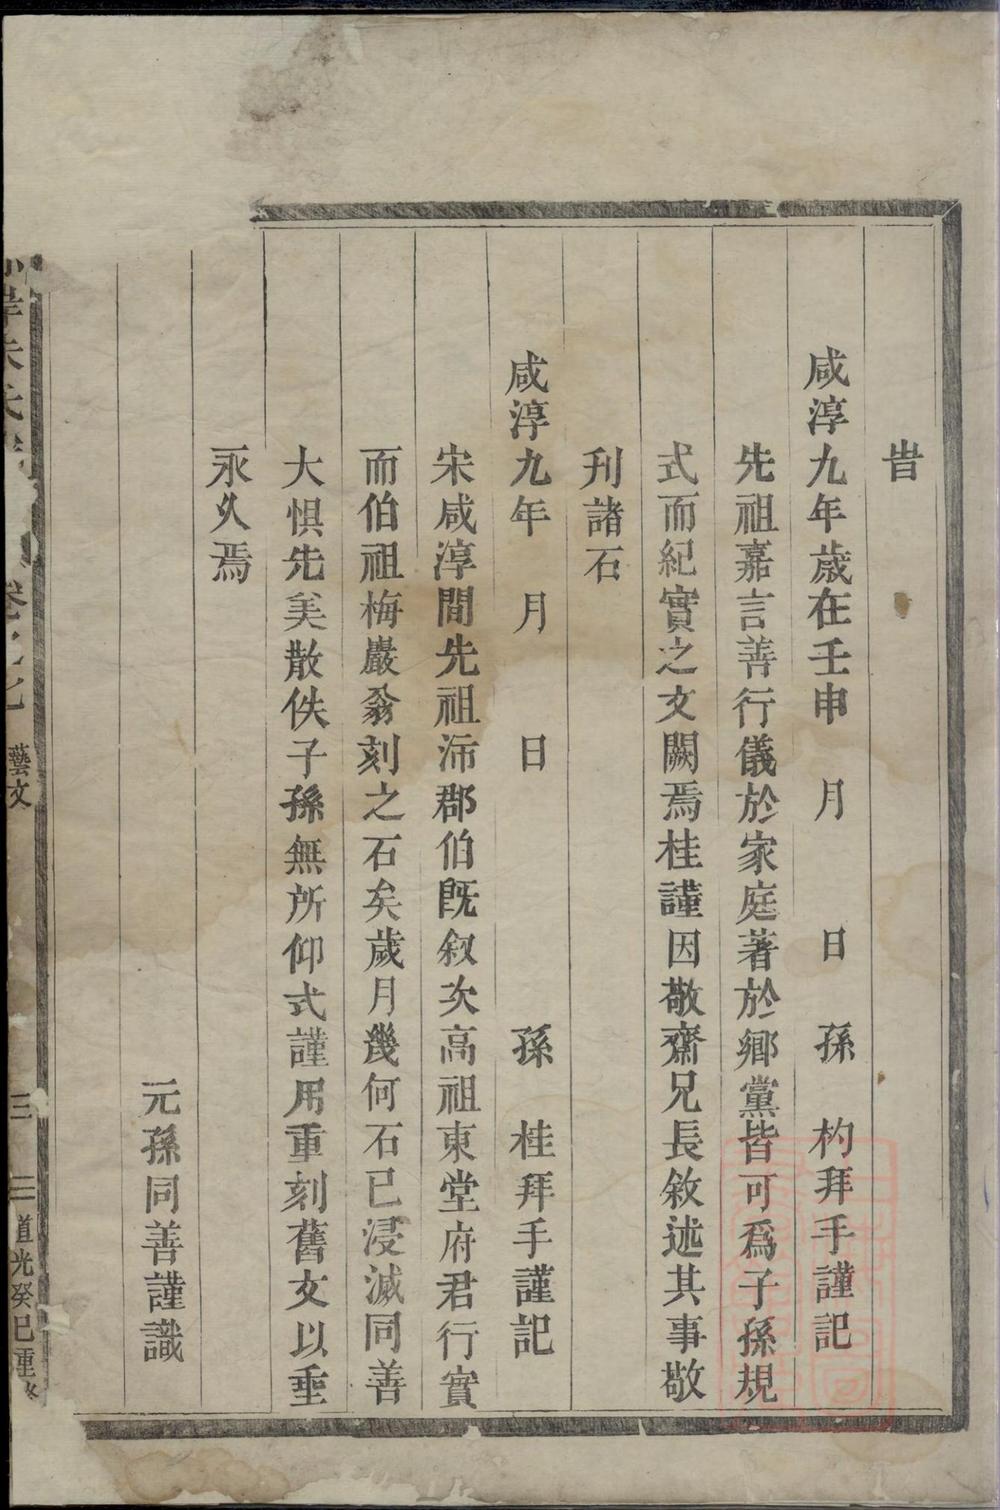 旹
咸淳九年歲在壬申　月　　日　孫　杓拜手謹記
先祖嘉言善行儀於家庭著於鄉黨皆可爲子孫規
式而紀實之文闕焉桂謹因敬齋兄長敘述其事敬
刋諸石
咸淳九年　月　　日　　　　　孫　桂拜手謹記
宋咸淳間先祖沛郡伯旣叙次高祖東堂府君行實
而伯祖梅巖翁刻之石矣歲月幾何石已浸滅同善
大懼先美散佚子孫無所仰式謹用重刻舊文以垂
永久焉
元孫同善謹識
岸朱氏　卷之七　藝文　三　二　道光癸巳重修